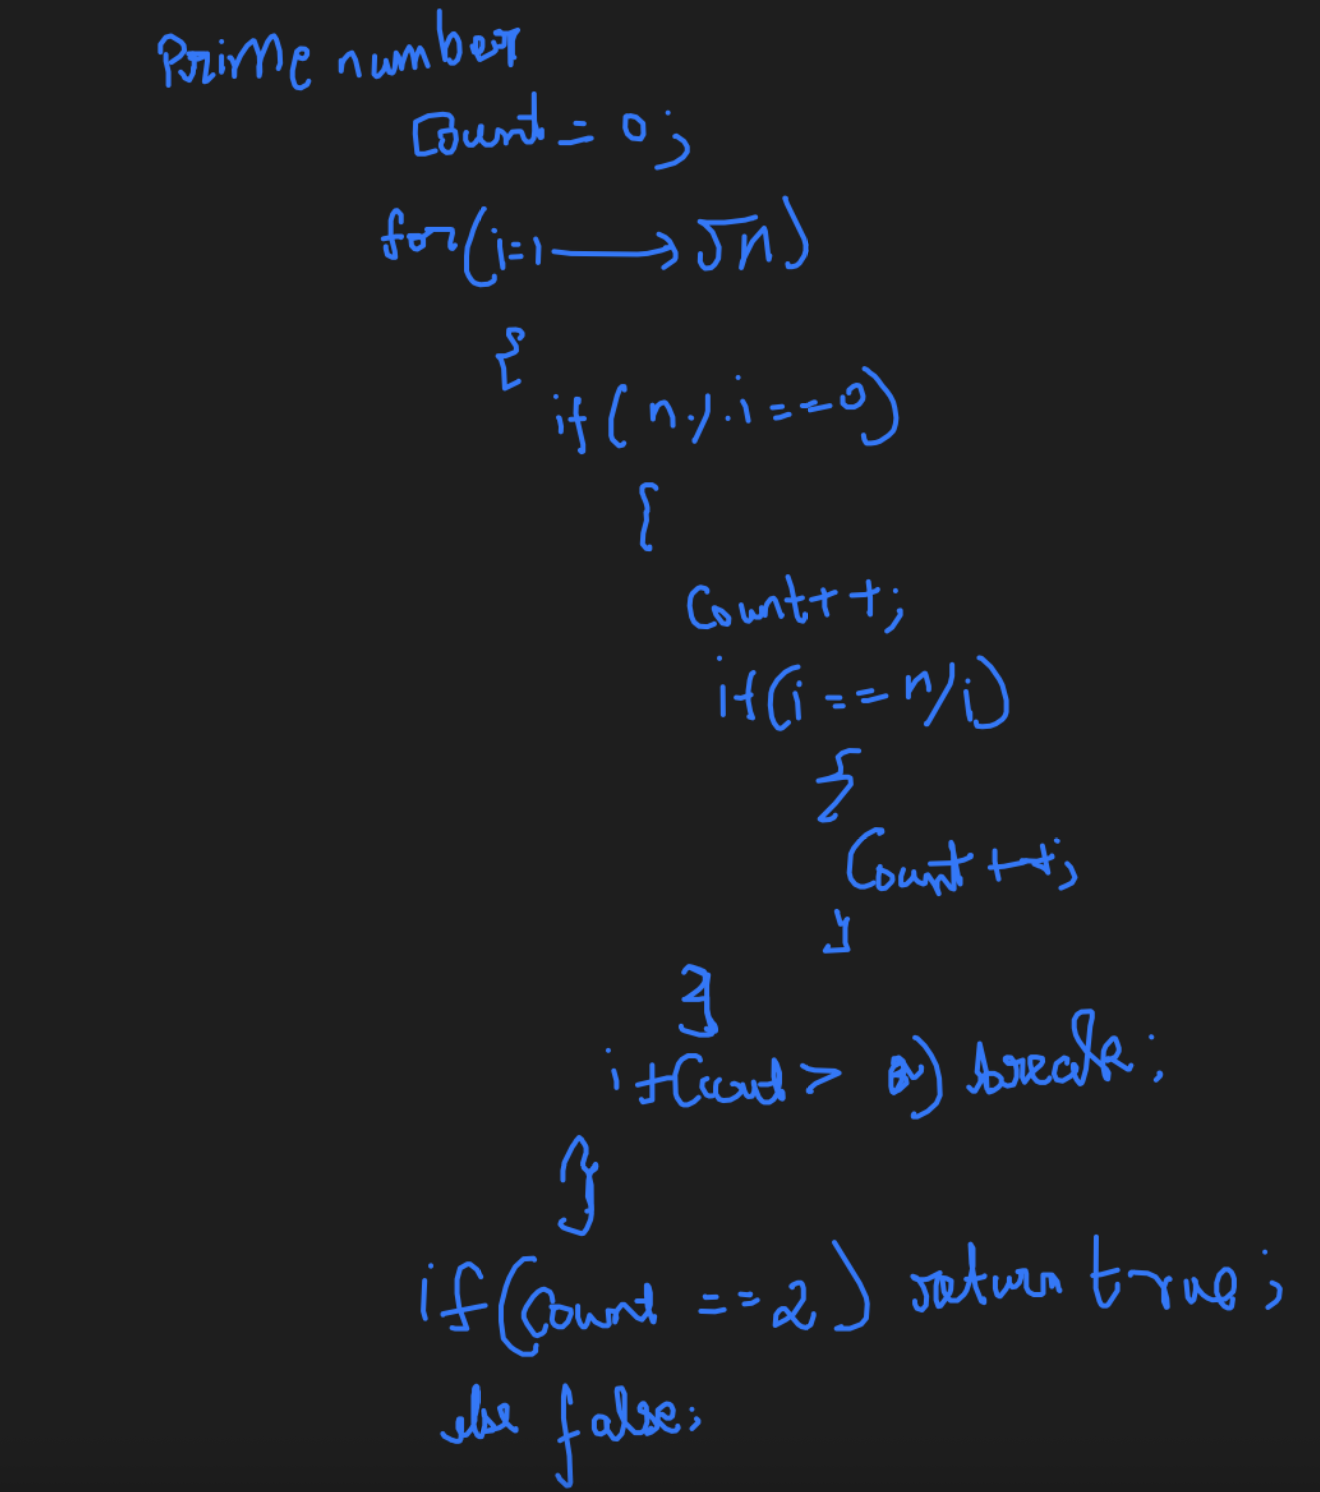 Prime number
Count = 0;
for(i=1 ⟶ √n)
{
if(n%i==0)
{
Count++;
if(i==n/i)
{
Count++;
}
}
if(count > ) break;
}
if(Count ==2) return true;
else false;